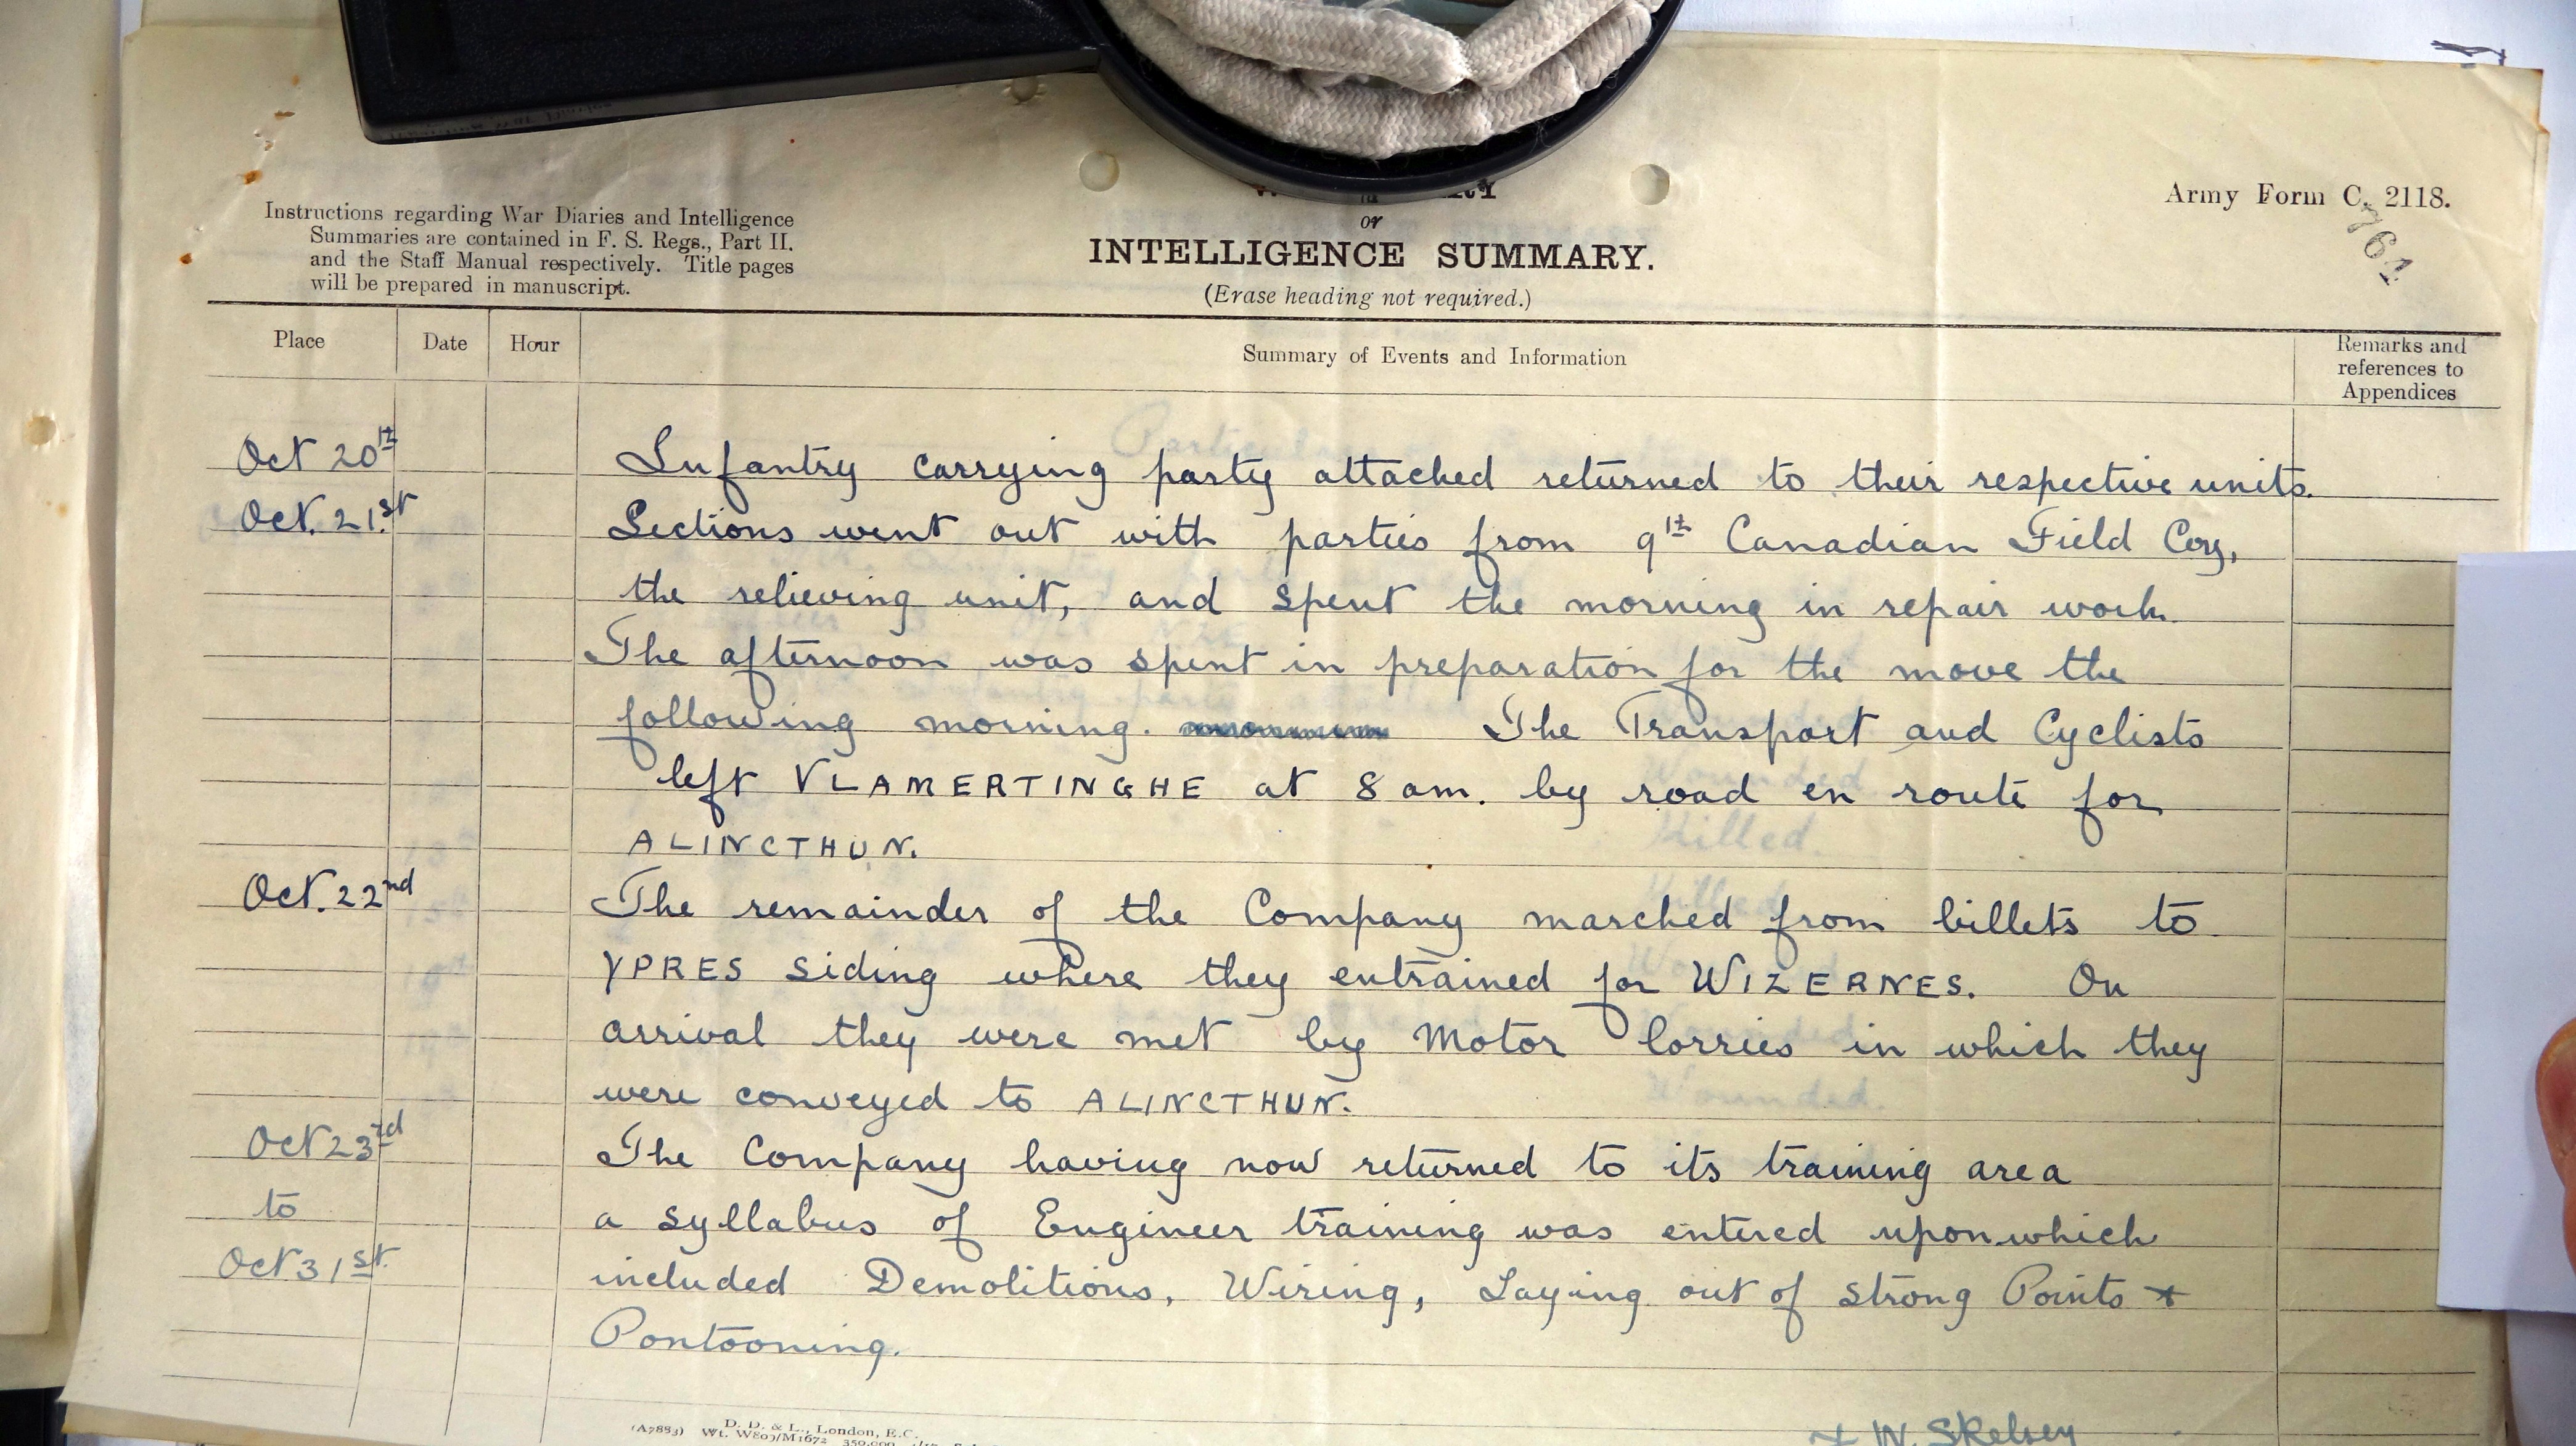 Army Form C. 2118.
761
Instructions regarding War Diaries and Intelligence
Summaries are contained in F. S. Regs., Part II.
and the Staff Manual respectively. Title pages
will be prepared in manuscript.
or
INTELLIGENCE SUMMARY.
(Erase heading not required.)
Place Date Hour Summary of Events and Information Remarks and
references to
Appendices
Oct 20th Infantry carrying party attached returned to their respective units.
Oct. 21.st Sections went out with parties from 9th Canadian Field Coy,
the relieving unit, and spent the morning in repair work.
The afternoon was spent in preparation for the move the
following morning. The Transport and Cyclists
left VLAMERTINGHE at 8 am. by road en route for
ALINCTHUN.
Oct. 22nd The remainder of the Company marched from billets to
YPRES siding where they entrained for WIZERNES. On
arrival they were met by Motor lorries in which they
were conveyed to ALINCTHUN.
Oct 23rd The Company having now returned to its training area
to a syllabus of Engineer training was entered upon which
Oct 31st. included Demolitions, Wiring, Laying out of strong Points +
Pontooning.
(A7883) D. D. & L., London, E.C.
Wt. W809/M1672 350,000
W. Skelsey